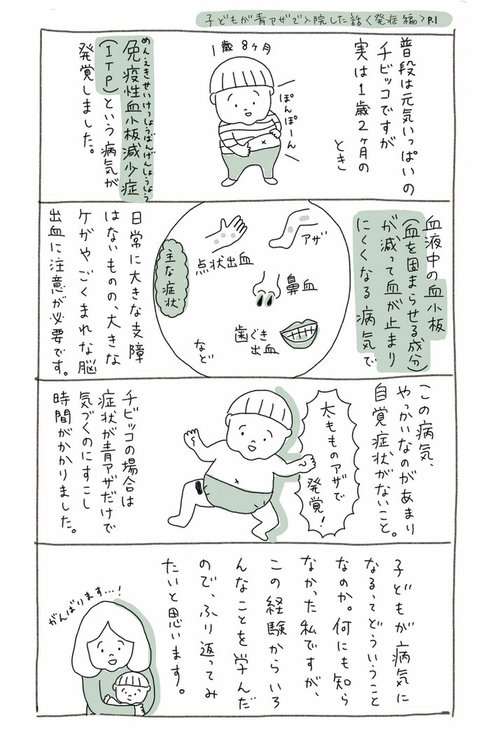 子どもが青アザで入院した話〈発症編〉P.1
普段は元気いっぱいの
チビッコですが
実は1歳2ヶ月の
とき
1歳8ヶ月
ぽんぽーん
めんえきせいけっしょうばんげんしょうしょう
免疫性血小板減少症
(ITP)という病気が
発覚しました。
血液中の血小板
(血を固まらせる成分)
が減って血が止まり
にくくなる病気で
アザ
点状出血
鼻血
歯ぐき
出血
など
主な症状
日常に大きな支障
はないものの、大きな
ケガや ごくまれな脳
出血に注意が必要です。
この病気、
やっかいなのがあまり
自覚症状がないこと。
太もものアザで
発覚!
チビッコの場合は
症状が青アザだけで
気づくのにすこし
時間がかかりました。
子どもが病気に
なるってどういうこと
なのか。何にも知ら
なかった私ですが、
この経験からいろ
んなことを学んだ
ので、ふり返ってみ
たいと思います。
がんばります…!